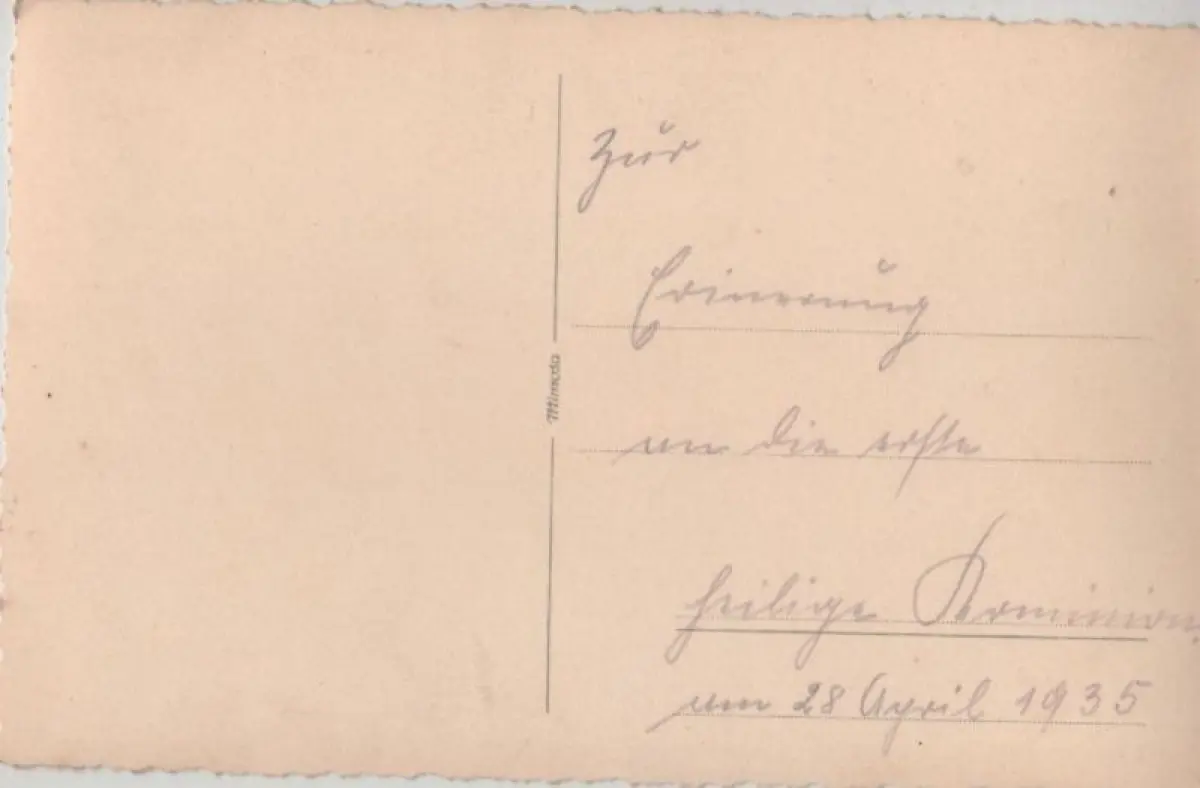 Zur
Erinnerung
an die erste
heilige Kominion
am 28 April 1935
Mimosa